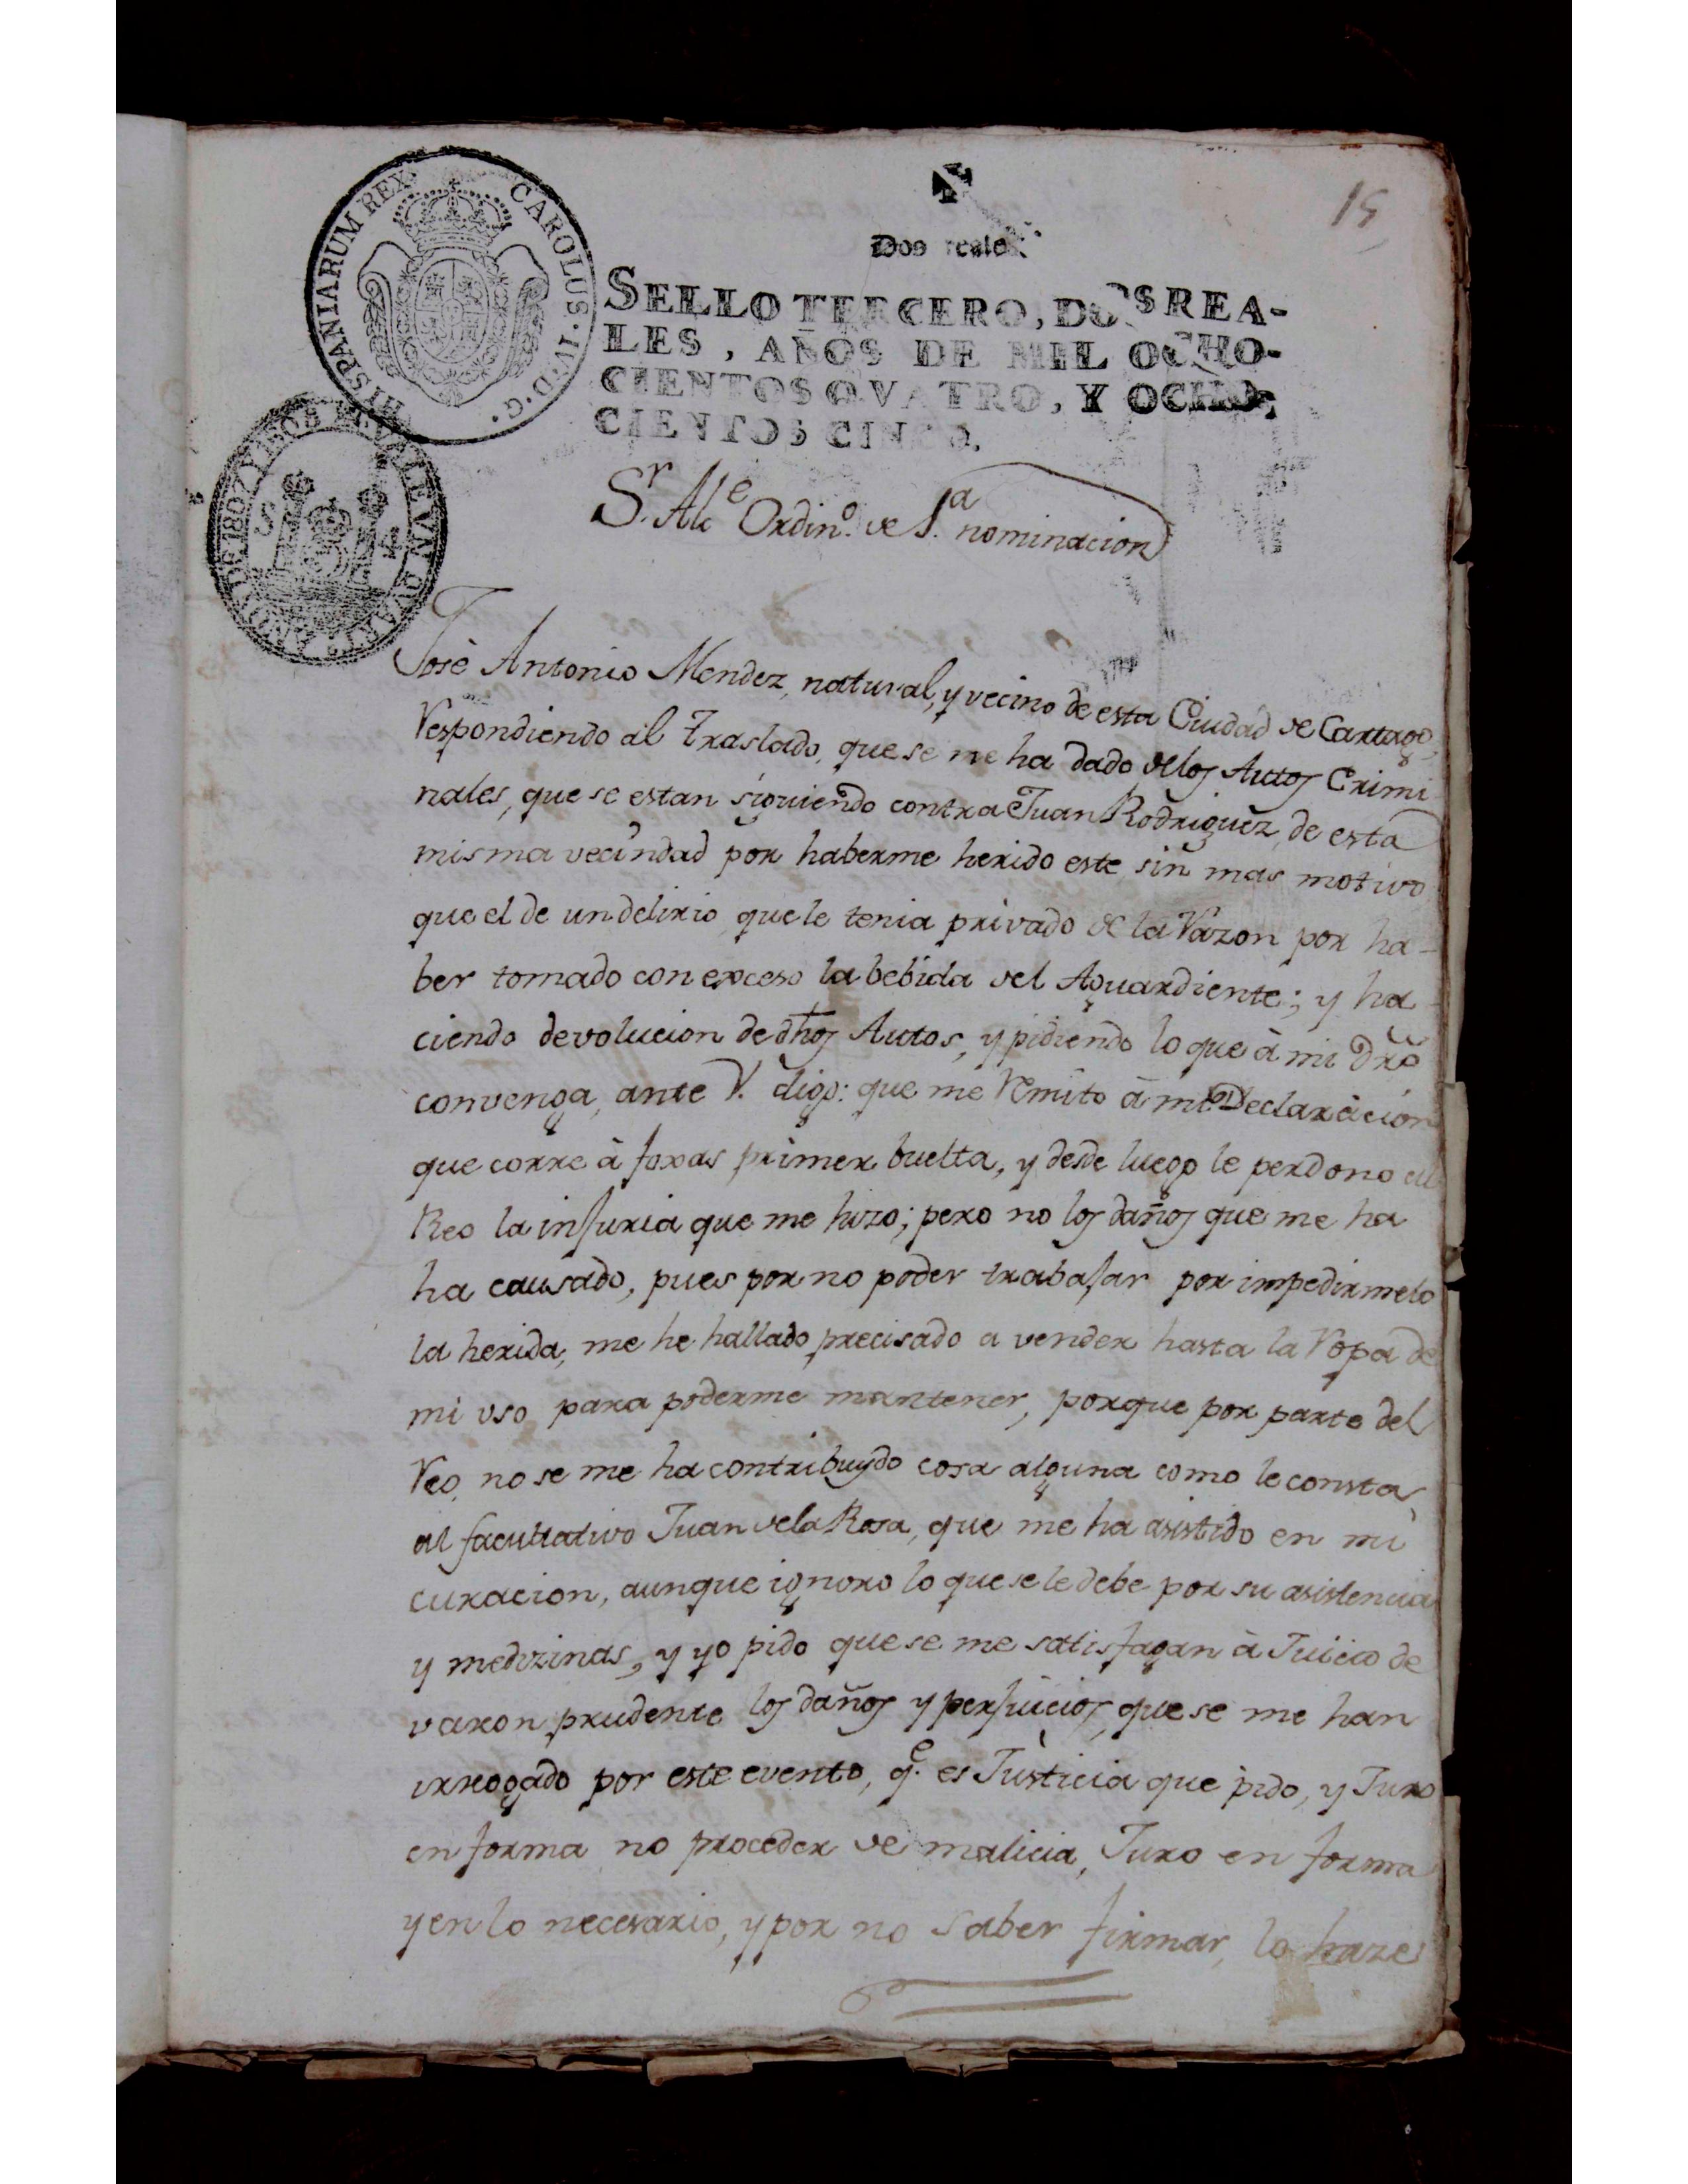 15
HISPANIARUM REX. CAROLUS·IV·D·G·
Dos reales.
SELLO TERCERO, DOS REA-
LES, AÑOS DE MIL OCHO-
CIENTOS QVATRO, Y OCHO-
CIENTOS CINCO.
S.r Alc.e Ordin.o de 1.a nominacion
Josè Antonio Mendez, natural, y vecino de esta Ciudad de Cartago,
Respondiendo al traslado, que se me ha dado de los Autos Crimi
nales, que se estan siguiendo contra Juan Rodriguez, de esta
misma vecindad por haberme herido este, sin mas motivo
que el de un delirio que le tenia privado de la Razon por ha-
ber tomado con exceso la bebida del Aguardiente; y ha-
ciendo devolucion de dhos Autos, y pidiendo lo que à mi Dro
convenga, ante V. digo: que me Remito à mi Declaracion
que corre à foxas primer buelta, y desde luego le perdono al
Reo la injuria que me hizo; pero no los daños que me ha
ha causado, pues por no poder trabajar por impedirmelo
la herida, me he hallado precisado a vender hasta la Ropa de
mi uso para poderme mantener, porque por parte del
Reo, no se me ha contribuydo cosa alguna como le consta
al facultativo Juan de la Rosa, que me ha asistido en mi
curacion, aunque ignoro lo que se le debe por su asistencia
y medizinas, y yo pido que se me satisfagan à Juicio de
varon prudente los daños y perjuicios, que se me han
irrogado por este evento, q.e es Justicia que pido, y Juro
en forma no proceder de malicia, Juro en forma
y en lo necesario, y por no saber firmar, lo haze